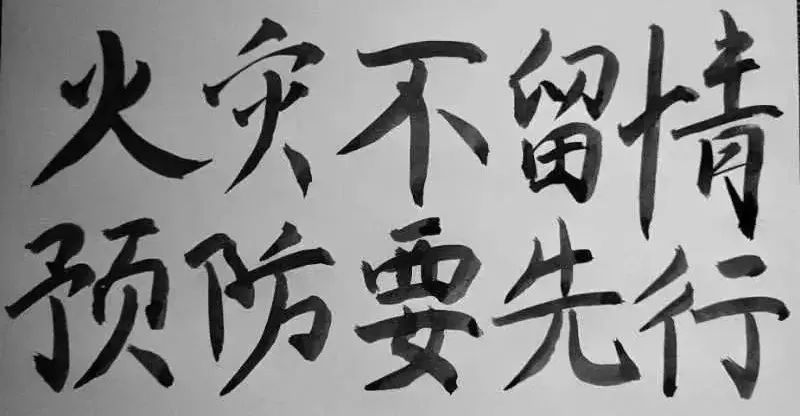 火灾不留情
预防要先行